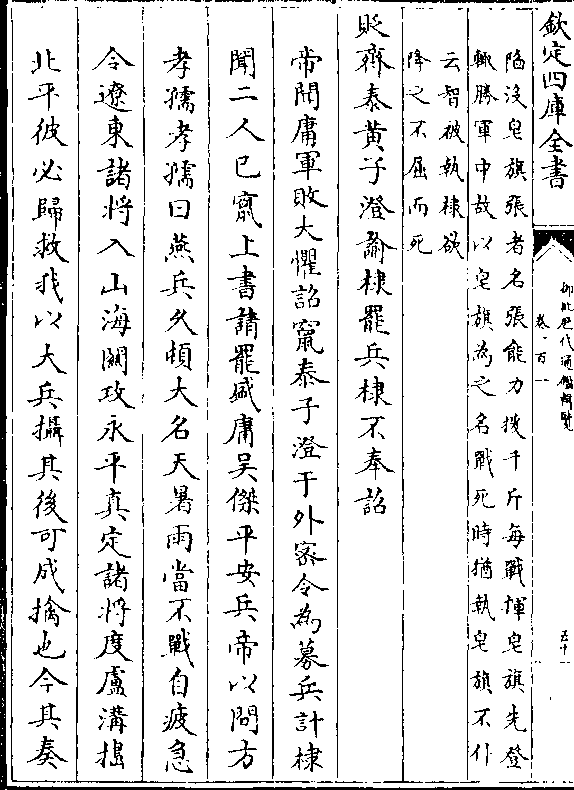 欽定四庫全書
御批歷代通鑑輯覽
卷一百一
五十一
陷沒皂旗張者名張能力挽千斤每戰揮皂旗先登
輒勝軍中故以皂旗為之名戰死時猶執皂旗不仆
云智被執棣欲
降之不屈而死
貶齊泰黄子澄諭棣罷兵棣不奉詔
帝聞庸軍敗大懼詔竄泰子澄于外宻令為募兵計棣
聞二人已竄上書請罷盛庸吴傑平安兵帝以問方
孝孺孝孺曰燕兵久頓大名天暑雨當不戰自疲急
令遼東諸將入山海關攻永平真定諸將度盧溝擣
北平彼必歸救我以大兵攝其後可成擒也今其奏